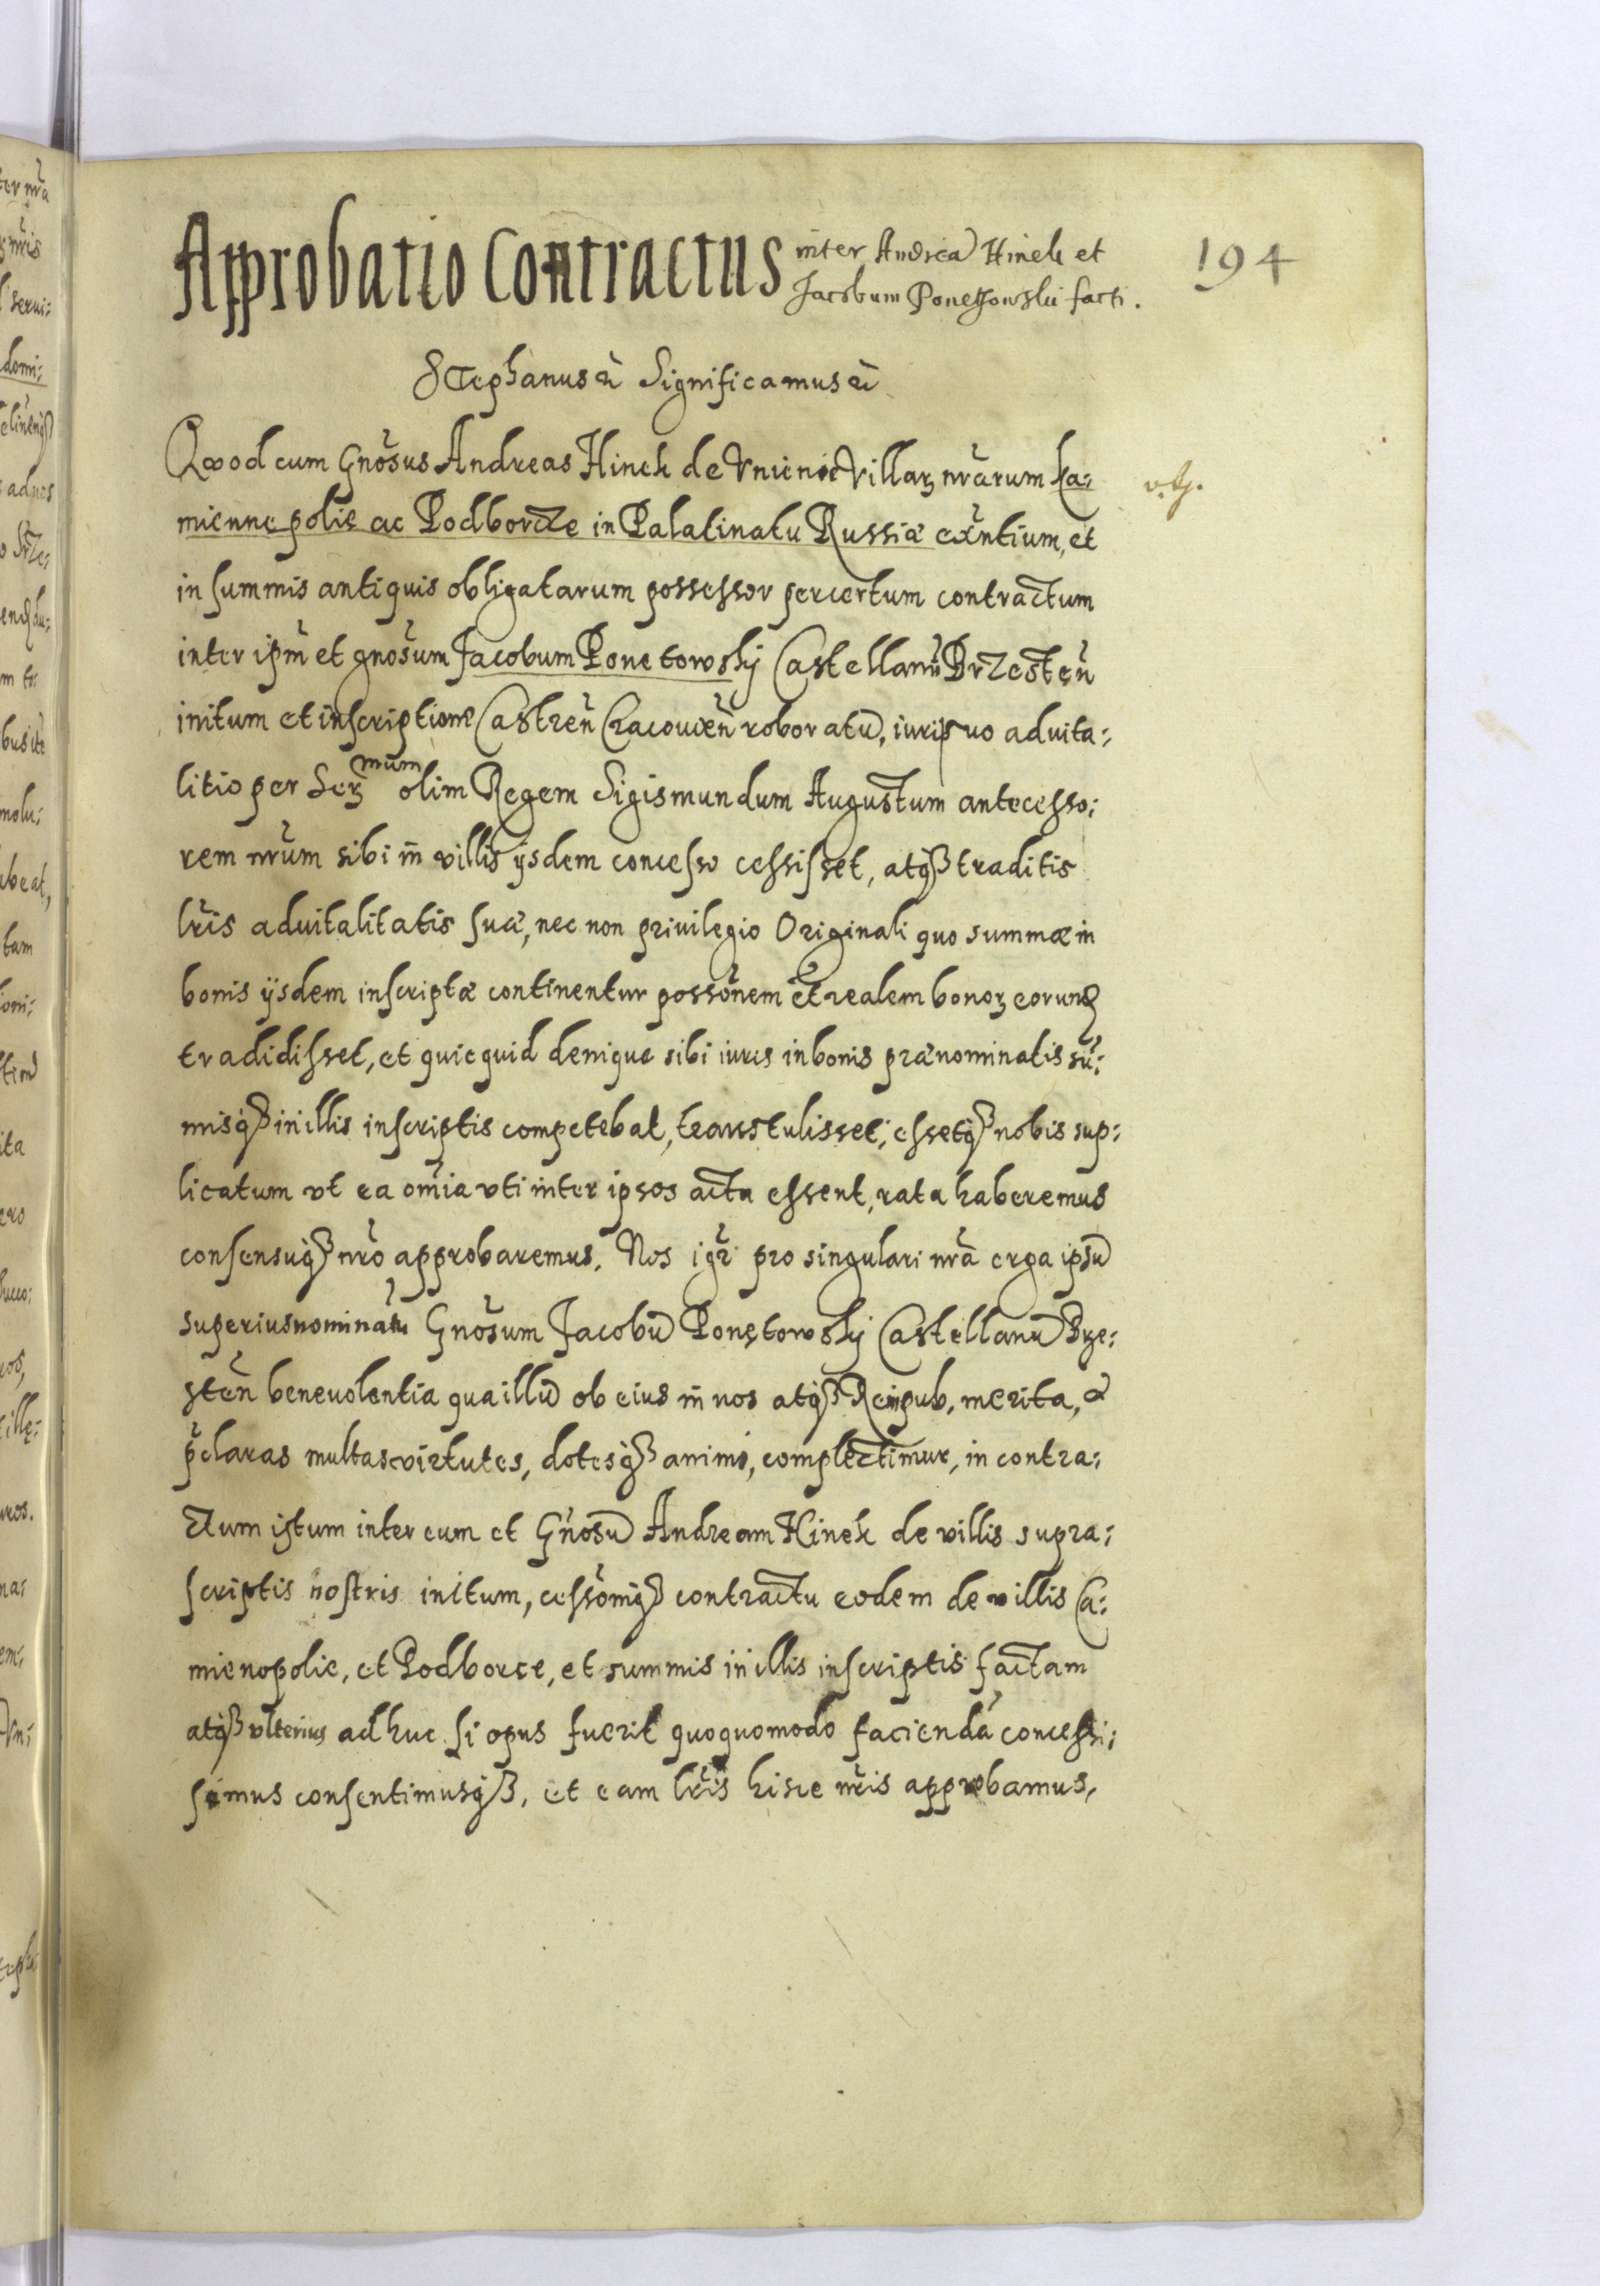 Approbatio Contractus inter Andreā Hinek et
Jacobum Ponetowski facti.
194
Stephanus &c̃ Significamus &c̃
Quod cum Gnõsus Andreas Hinek de Villaꝝ nr̃arum Ka:
miennepolie ac Podborcze in Palatinatu Russiæ exñtium, et
in summis antiquis obligatarum possessor per certum contractum
inter ipm̃ et gnõsum Jacobum Ponetowskij Castellanũ Brzesteñ
initum et inscriptione Castreñ Cracovieñ roboratũ, iuri suo advita:
litio per Serꝫmum olim Regem Sigismundum Augustum antecesso:
rem nr̃um sibi in̄ villis ijsdem concesso cessisset, atqꝫ traditis
lr̃is advitalitatis suæ, nec non privilegio Originali quo summæ in
bonis ijsdem inscriptæ continentur possõnem et realem bonoꝝ eorund
tradidisset, et quicquid denique sibi iuris in bonis prænominatis sũ:
misqꝫ in illis inscriptis competebat, transtulisset; essetqꝫ nobis sup:
licatum vt ea om̃ia vti inter ipsos acta essent, rata haberemus
consensuqꝫ nr̃o approbaremus. Nos igr̃ pro singulari nr̃a erga ipsũ
superius nominatũ Gnõsum Jacobũ Ponętowskij Castellanũ Brze:
steñ benevolentia qua illũ ob eius in̄ nos atqꝫ Reipub, merita, &
p̃claras multas virtutes, dotesqꝫ animi, complectimur, in contra:
ctum istum inter eum et Gñosũ Andream Hinek de villis supra:
scriptis nostris initum, cessõnẽqꝫ contractu eodem de villis Ca:
mienopolie, et Podborce, et summis in illis inscriptis factam
atqꝫ vlterius adhuc si opus fuerit quoquomodo faciendā concessi:
simus consentimusqꝫ, et eam lr̃is hisce nr̃is approbamus,